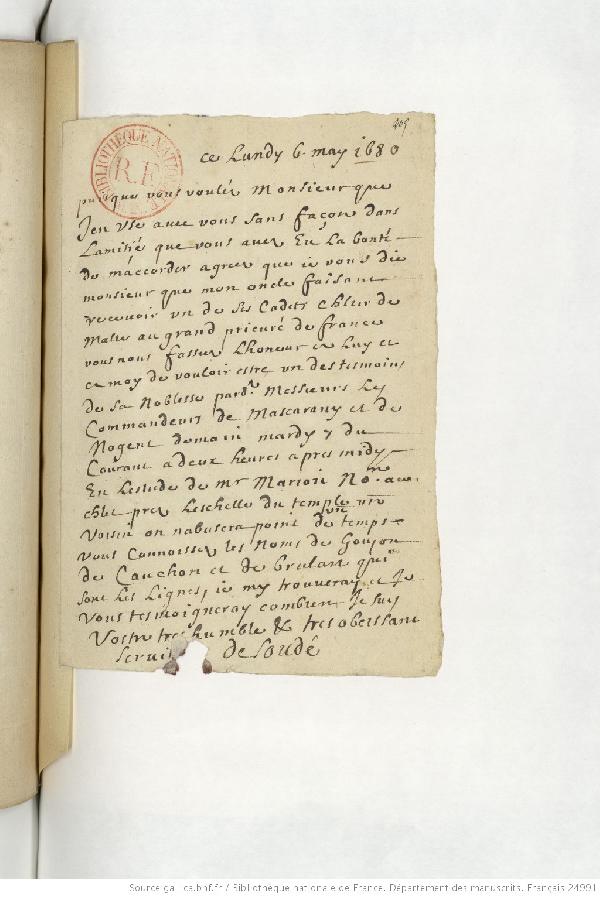 205
ce Lundy 6 may 1680
puisque vous voulés Monsieur que
J'en Vse avec vous sans façon dans
Lamitié que vous avez Eü la bonté
de m'accorder agrees que ie vous die
monsieur que mon oncle faisant
recevoir vn de ses Cadets chlier de
Malte au grand prieuré de france
vous nous fassiez Lhoneur a Luy et
a moy de vouloir estre vn des tesmoins
de sa Noblesse pard.t Messieurs Les
Commandeurs de Mascarany et de
Nogent demain mardy 7 du
Courant a deux heures apres midy
En Lestude de mr Marion No.re au
chlet prez Leschelle du temple nre
Voisin on nabusera point de vre temps
vous Connoissez les Noms de Goujon
de Cauchon et de brulart qui
sont les Lignes, ie my trouveray et Je
Vous tesmoigneray combien Je suis
Vostre tres humble & tres obeissant
servit de Soudé
BIBLIOTHÈQUE NATIONALE
R.F.
Source gallica.bnf.fr / Bibliothèque nationale de France. Département des manuscrits. Français 24991